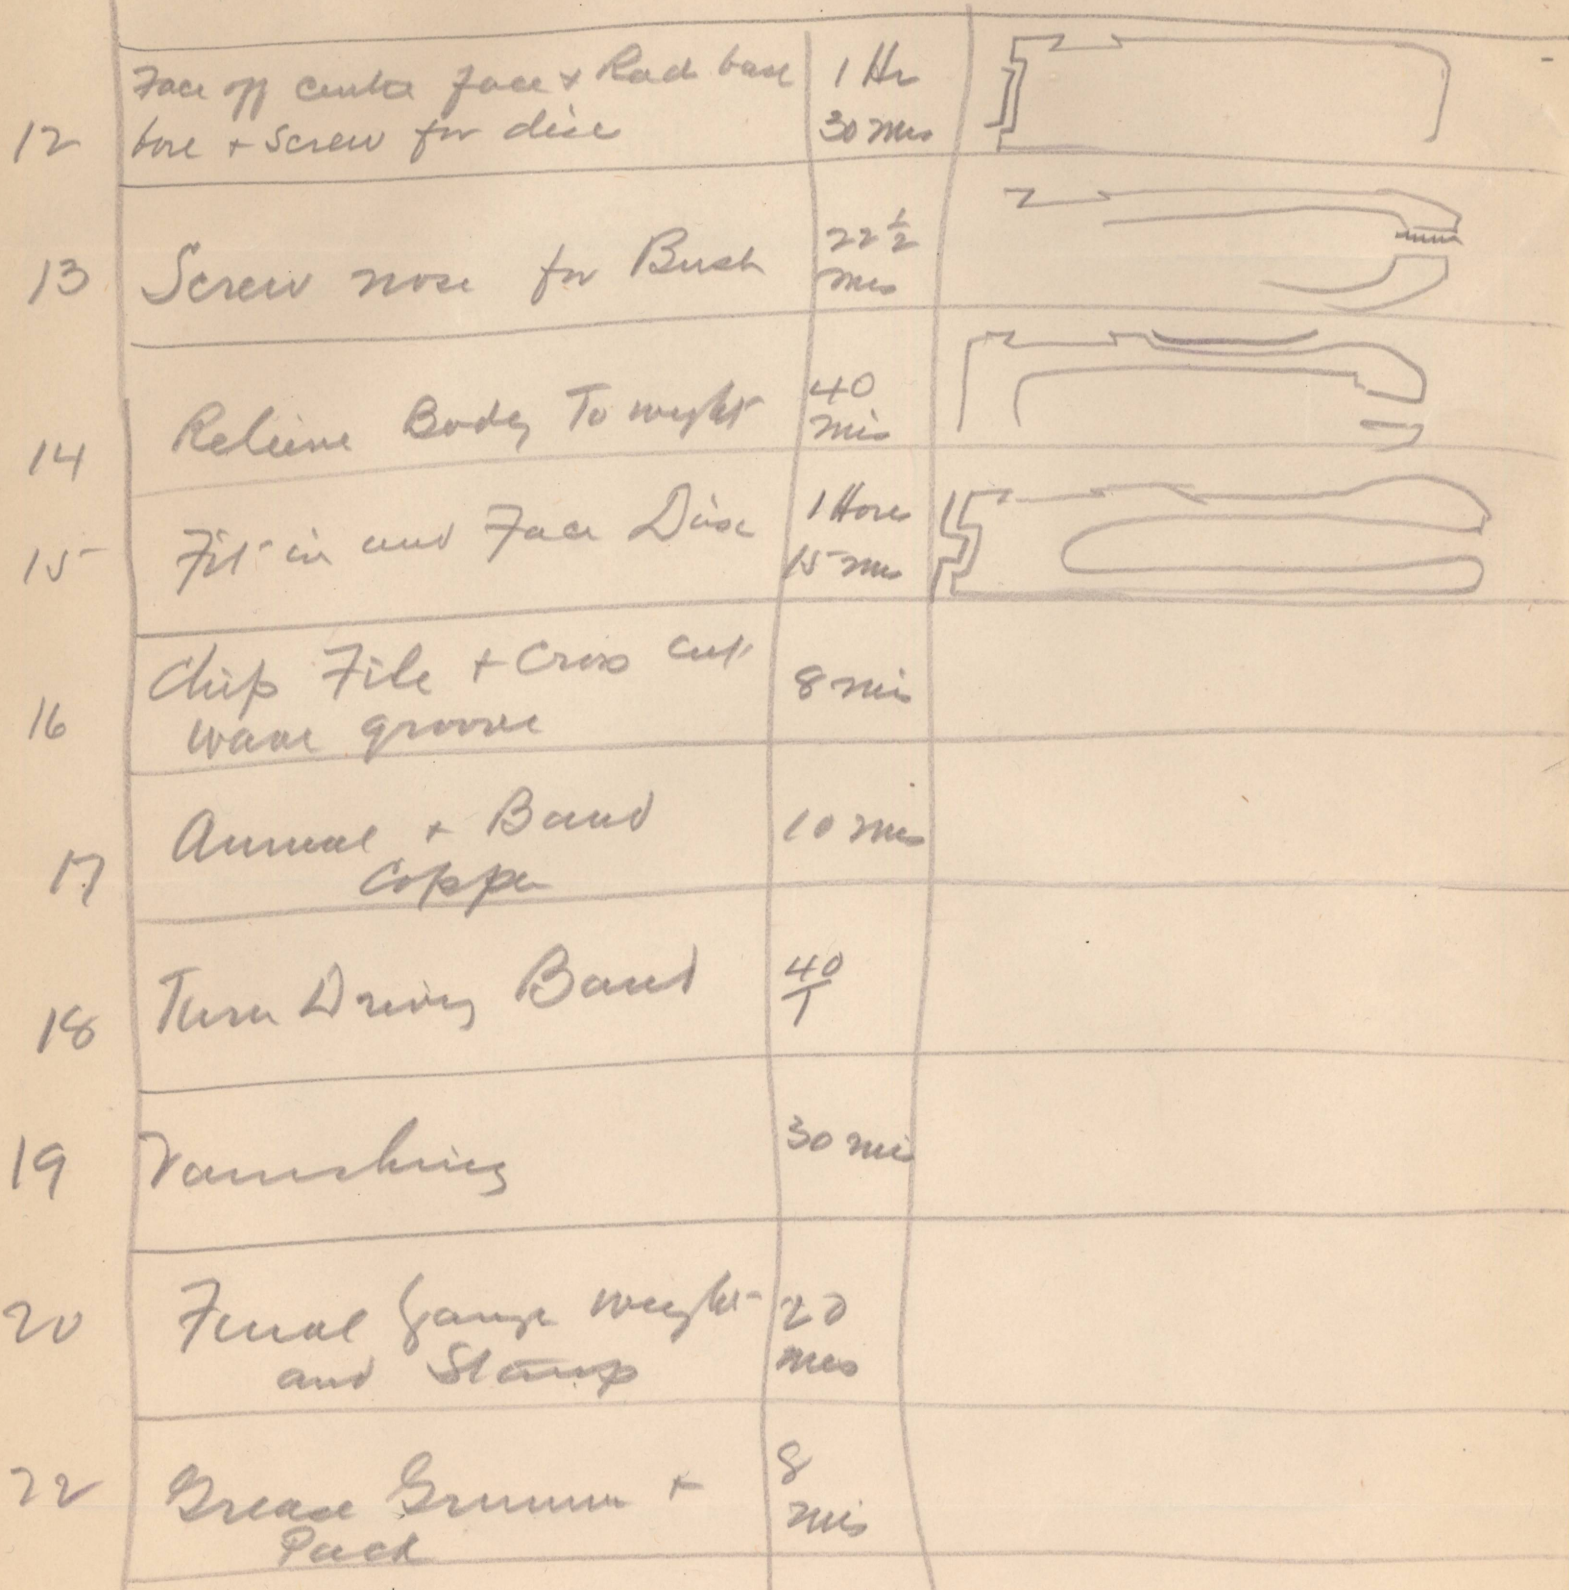 Face off centre face + Rad base 1 Hr
12 bore + Screw for disc 30 mns
13 Screw nose for Bush 22 ½ mns
14 Relieve Body To weight 40 mis
15 Fit in and Face Disc 1 Hour 15 mns
Chip File + Cross cut 8 mis
16 wave groove
Anneal + Band 10 mns
17 Copper
18 Turn Driving Band 40/1
19 Varnishing 30 mi
20 Final Gauge weight 20
and Stamp mns
22 Grease + 8
Pack mis